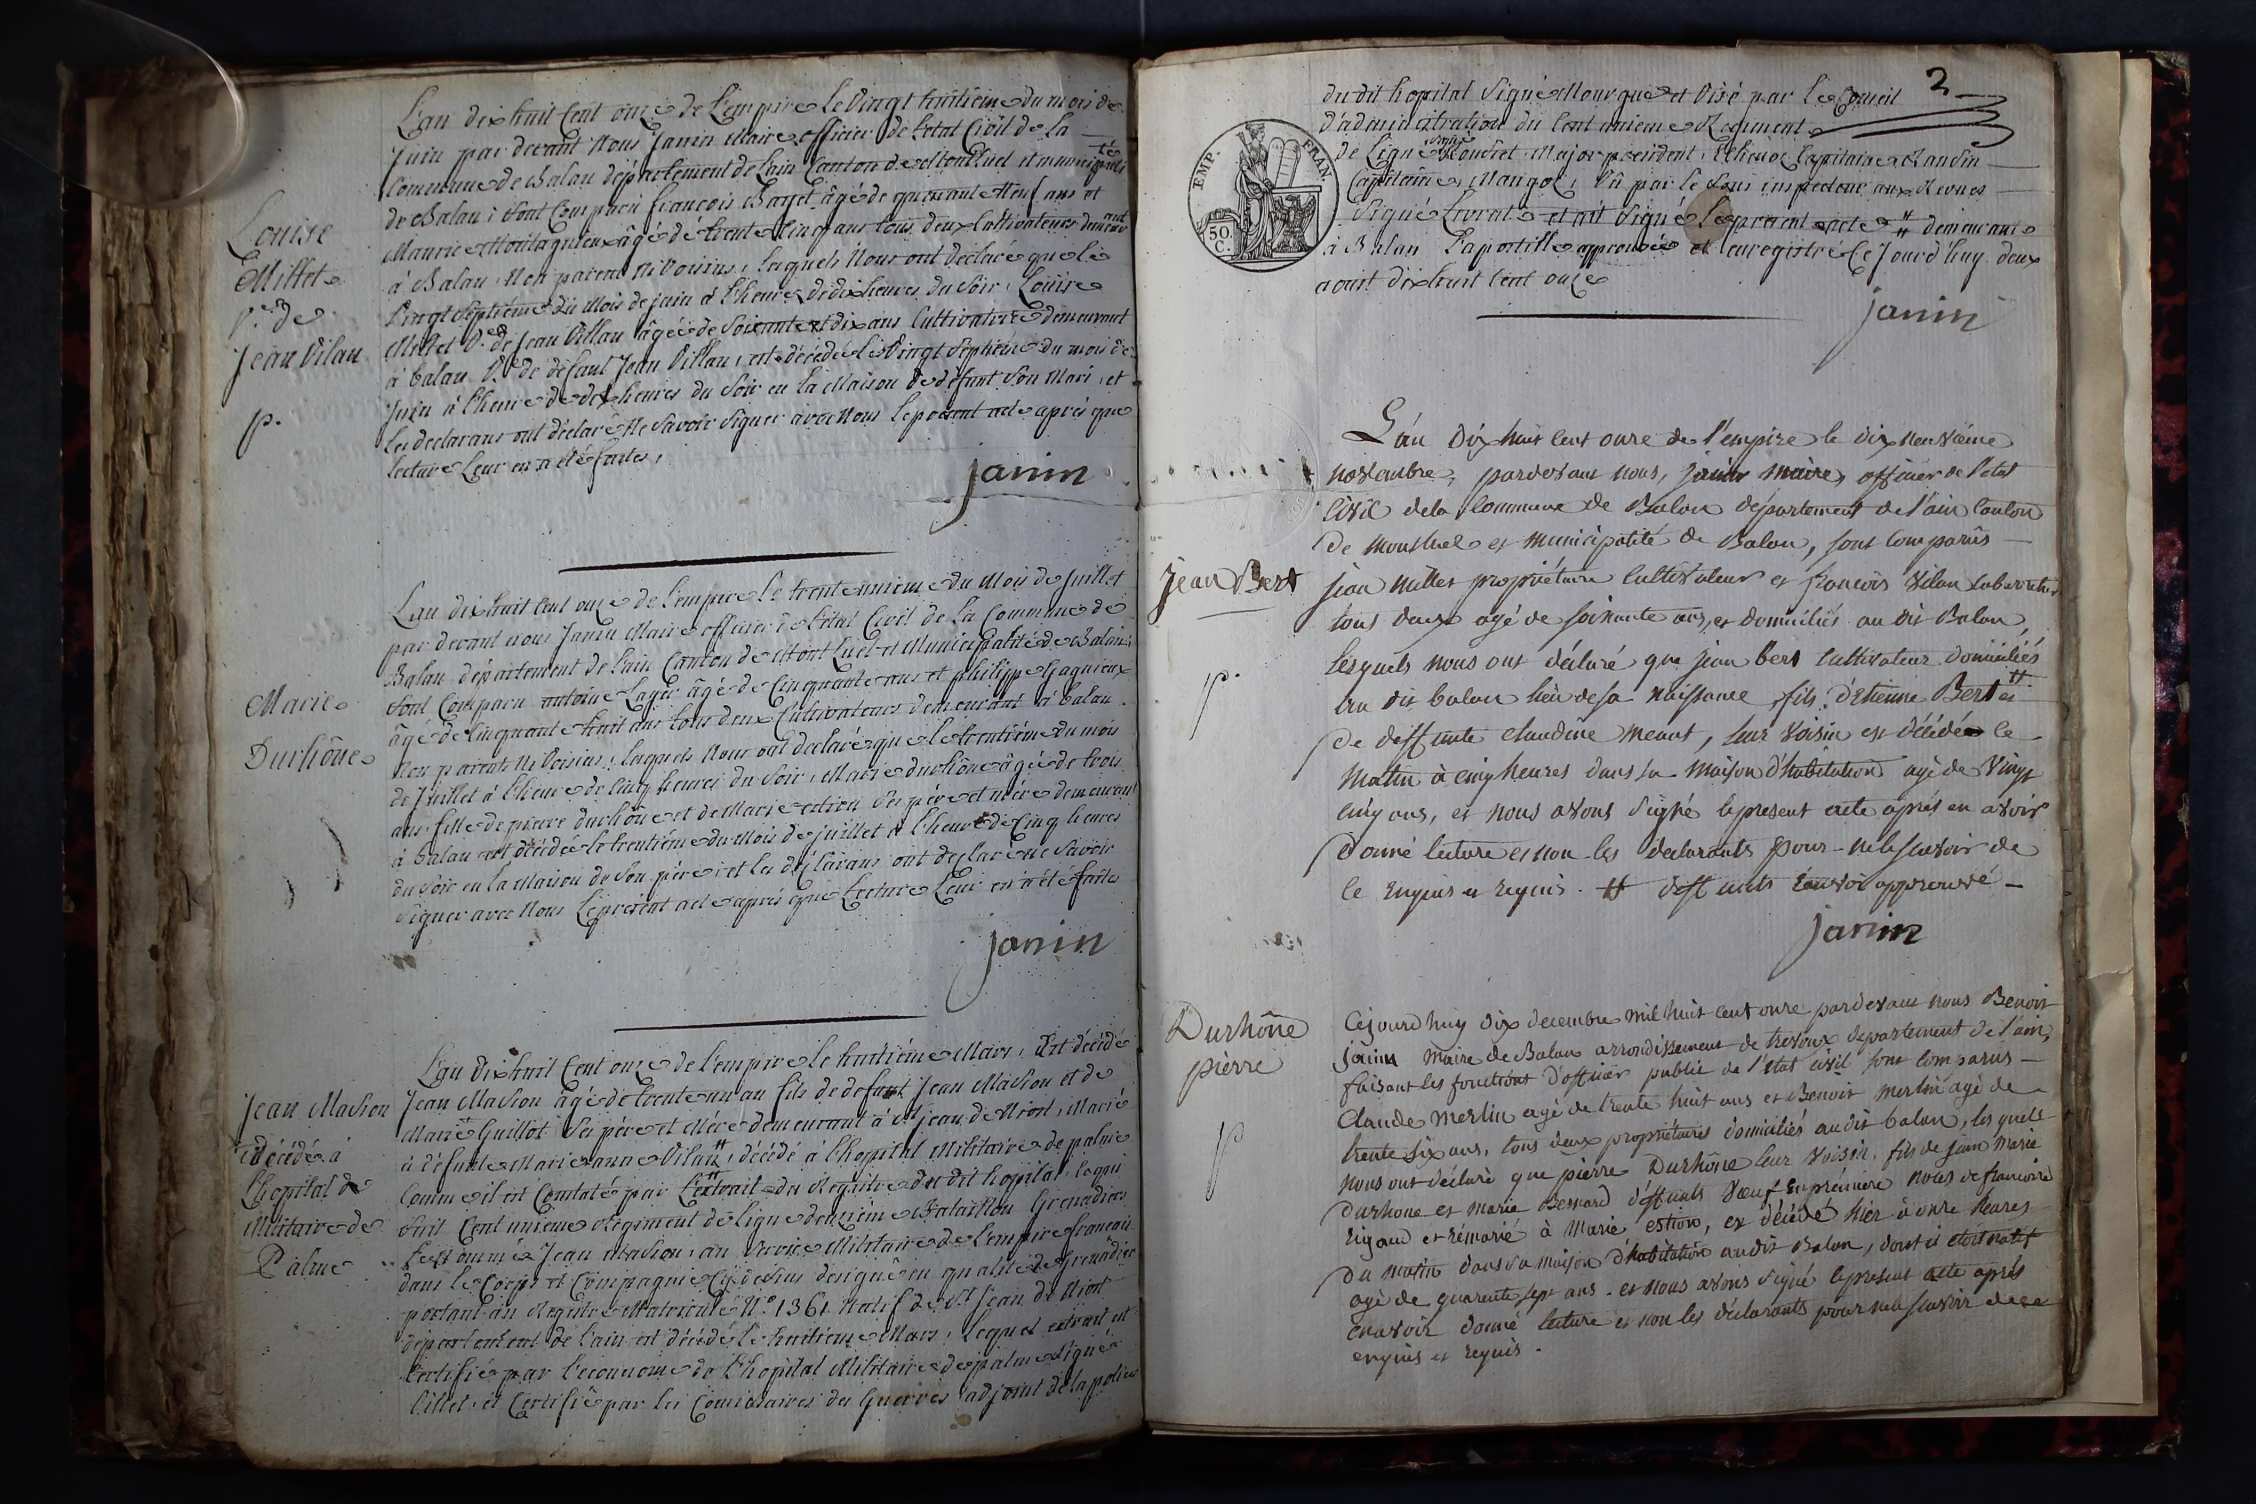 L'an dix huit Cent onze de L'empire le Vingt huitième du mois de
Juin par devant Nous Janin Maire officier de l'etat Civil de la
Commune de Balan département de L'ain Canton de Montluel et municipalité
de Balan ; sont Comparu francois Bayet âgé de quarante Neuf ans et
Maurice Montagnieux âgé de trente Cinq ans tous deux Cultivateurs demeurant
à Balan, Non parens Ni Voisins, lesquels Nous ont declaré que le
Vingt Septième du Mois de juin à l'heure de dix heures du Soir, Louise
Millet Ve de Jean Villan âgée de Soixante et dix ans Cultivatrice demeurant
à balan Ve de défunt Jean Villan, est décédée le Vingt Septième du mois de
Juin à l'heure de dix heures du Soir en la Maison de défunt Son Mari, et
les declarans ont declaré Ne Savoir Signer avec Nous le présent acte après que
lecture Leur en a été faite,
Janin
Louise
Millet
Ve de
Jean Vilan
p.
L'an dix huit Cent onze de L'empire le trente unième du Mois de Juillet
par devant nous Janin Maire officier de l'état Civil de la Commune de
Balan, département de l'ain Canton de Mont Luel et Municipalité de Balan,
sont Comparu antoine Lager âgé de Cinquante ans et philippe Gagnieux
âgé de Cinquante huit ans tous deux Cultivateurs demeurant à balan.
Non parents Ni Voisins, lesquels Nous ont declaré que le trentième du mois
de Juillet à l'heure de Cinq heures du Soir, Marie durhône âgée de trois
ans fille de pierre durhône et de Marie estion Ses père et mère demeurant
à balan est décédée le trentième du Mois de juillet à l'heure de Cinq heures
du Soir en la Maison de Son père, et les déclarans ont declaré ne Savoir
Signer avec Nous le présent acte après que Lecture Leur en a été faite
Janin
Marie
Durhône
L'an dix huit Cent onze de L'empire le huitième Mars, Est décédé
Jean Masion âgé de trente un an fils de defunt Jean Masion et de
Marie Guillot Ses père et Mère demeurant à St jean de Niort, Marié
à défunte Marie anne Vilan #, décédé à l'hopital Militaire de palme
Comme il est Constaté par l'extrait du Registre du dit hopital, le qui
suit Cent unieme Régiment de ligne deuxieme Bataillon Grenadiers
le nommé Jean Masion, au Service Militaire de L'empire francais
dans le Corps et Compagnie Cy dessus designé en qualité de Grenadier
portant au Registre Matricule No 1361 Natif de St Jean de Niort
département de l'ain est décédé le huitième Mars, lequel extrait est
Certifié par l'econome de l'hopital Militaire de palme Signé
Villet, et Certifié par les Comissaires des Guerres adjoint de la police
Jean Masion
décédé à
L'hopital de
Militaire de
Palme
2
du dit hopital Signé Mourgue et Visé par le Conseil
d'administration du Cent unieme Regiment
de Ligne signé Major president, Capitaine
Capitaine, Mangot, Vû par le Sous inspecteur aux Revues
Signé Livrat et ait Signé le present acte # demeurant
à Balan L'apostille approuvée et Enregistré Ce Jourd'huy deux
aout dix huit Cent onze
Janin
EMP. FRAN.
50 C.
L'an Dix huit Cent onze de l'empire le dix neuvième
novembre, pardevant nous, janin maire, officier de l'etat
Civil de la Commune de Balan département de l'ain Canton
de Montluel et Municipalité de Balan, sont Comparûs
jean millet propriétaire Cultivateur et francois Vilan laboureur
tous deux agé de soixante ans, et domiciliés au dit Balan,
lesquels nous ont déclaré que jean bert Cultivateur domicilié
au dit balan lieu de sa naissance, fils d'Etienne Bert # et
de deffunte claudine meant, leur Voisin est décédé ce
Matin à cinq heures dans sa maison d'habitation agé de Vingt
cinq ans, et nous avons signé le present acte aprés en avoir
donné lecture et non les declarants pour ne le scavoir de
ce Enquis et requis. # deffunts renvoi approuvé
Janin
jean Bert
p.
Cejourd'huy dix decembre mil huit cent onze pardevant nous Benoit
janin maire de Balan arrondissement de trevoux departement de l'ain,
faisant les fonctions d'officier public de l'etat civil sont comparus
Claude Merlin agé de trente huit ans et Benoit merlin agé de
trente six ans, tous deux propriétaires domiciliés audit balan, les quels
nous ont déclaré que pierre Durhône leur Voisin, fils de jean marie
durhone et marie Bernard deffunts Vœuf en première noces de francoise
rigaud et rémarié à marie estion, est décédé hier à onze heures
du matin dans sa maison d'habitation audit Balan, dont il etoit natif
agé de quarente sept ans. et nous avons signé le present acte après
en avoir donné lecture et non les déclarants pour ne le scavoir de ce
enquis et requis.
Durhône
pierre
p